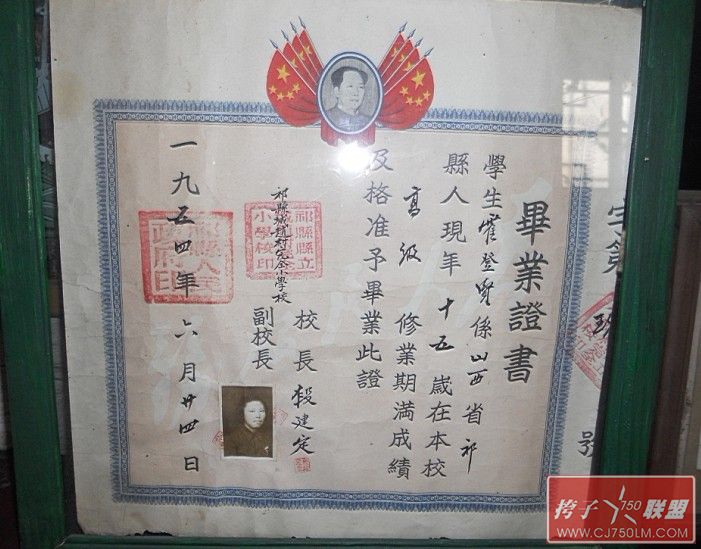 字第
號
畢業證書
學生霍登賢係山西省祁
縣人現年十五歲在本校
高級修業期滿成績
及格准予畢業此證
校長 段建定
副校長
祁縣城趙村完全小學校
祁縣縣立
小學校印
一九五四年六月廿四日
挎子750联盟
WWW.CJ750LM.COM